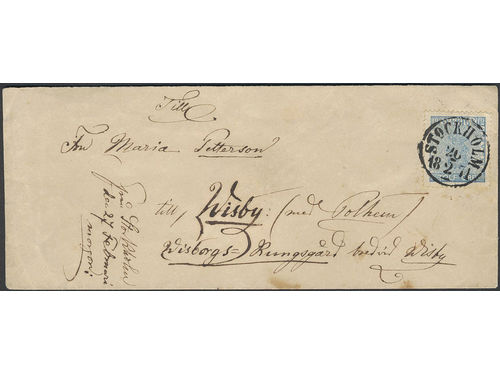 Till
Fru Maria Petterson
till Wisby (med Polhem)
Wisborgs=Kungsgård bredvid Wisby
från Stockholm
den 27 Februari
morgon.
STOCKHOLM
18 2